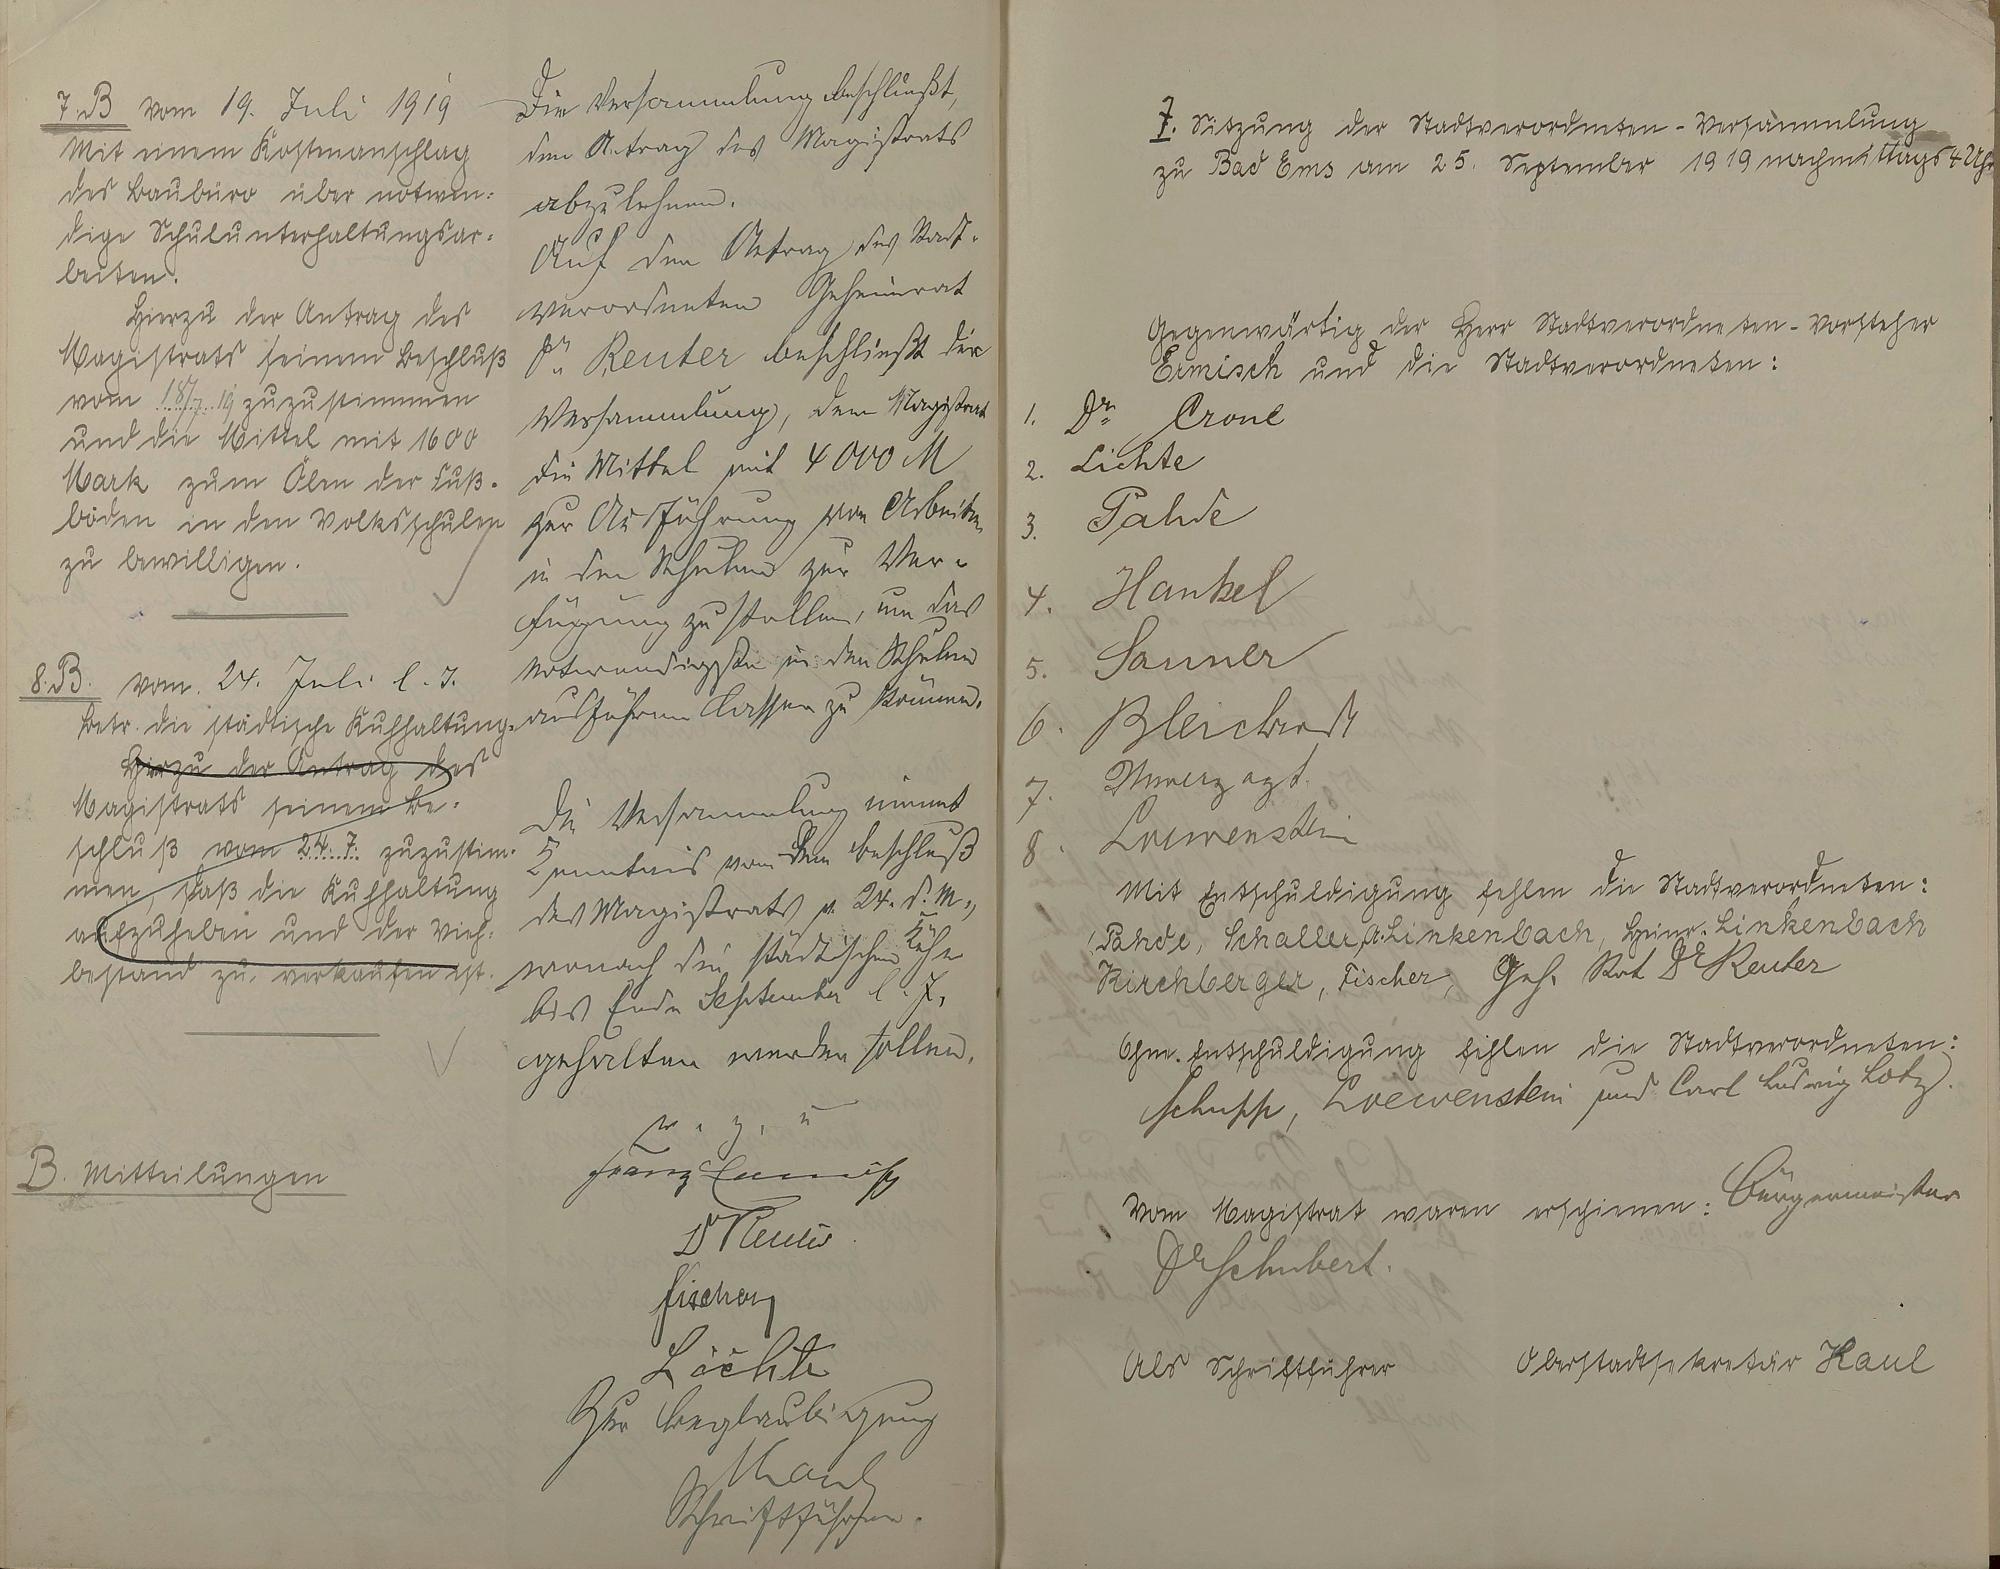 7. B vom 19. Juli 1919
Mit einem Kostenanschlag
des Baubüro über notwen-
dige Schulunterhaltungsar-
beiten.
Hierzu der Antrag des
Magistrats seinem Beschluß
vom 18/7. 19 zuzustimmen
und die Mittel mit 1600
Mark zum Ölen der Fuß-
böden in den Volksschulen
zu bewilligen.
8. B. vom 24. Juli l. J.
betr. die städtische Kuhhaltung.
Hierzu der Antrag des
Magistrats seinem Be-
schluß vom 24. 7. zuzustim-
men, daß die Kuhhaltung
aufzuheben und der Vieh-
bestand zu verkaufen ist.
B. Mitteilungen
Die Versammlung beschließt,
den Antrag des Magistrats
abzulehnen.
Auf den Antrag des Stadt-
verordneten Geheimrat
Dr. Reuter beschließt die
Versammlung, dem Magistrat
die Mittel mit 4000 M
zur Ausführung von Arbeiten
in den Schulen zur Ver-
fügung zu stellen, um das
notwendigste in den Schulen
ausführen lassen zu können.
Die Versammlung nimmt
Kenntnis von dem Beschluß
des Magistrats v. 24. d. M.,
wonach die städtischen Kühe
bis Ende September l. J.
gehalten werden sollen.
v. g. u
Franz Ermisch
Dr Reuter
Fischer
Lichte
Zur Beglaubigung
Kaul
Schriftführer.
7. Sitzung der Stadtverordneten-Versammlung
zu Bad Ems am 25. September 1919 nachmittags 4 Uhr
Gegenwärtig der Herr Stadtverordneten-Vorsteher
Ermisch und die Stadtverordneten:
1. Dr. Crone
2. Lichte
3. Pahde
4. Hankel
5. Sauner
6. Bleichrodt
7. Unverzagt.
8. Loewenstein
Mit Entschuldigung fehlen die Stadtverordneten:
Pahde, Schaller, A. Linkenbach, Heinr. Linkenbach
Kirchberger, Fischer, Geh. Rat Dr Reuter
Ohne Entschuldigung fehlen die Stadtverordneten:
Schupp, Loewenstein und Carl Ludwig Lotz.
Vom Magistrat waren erschienen: Bürgermeister
Dr Schubert.
Als Schriftführer Oberstadtsekretär Kaul